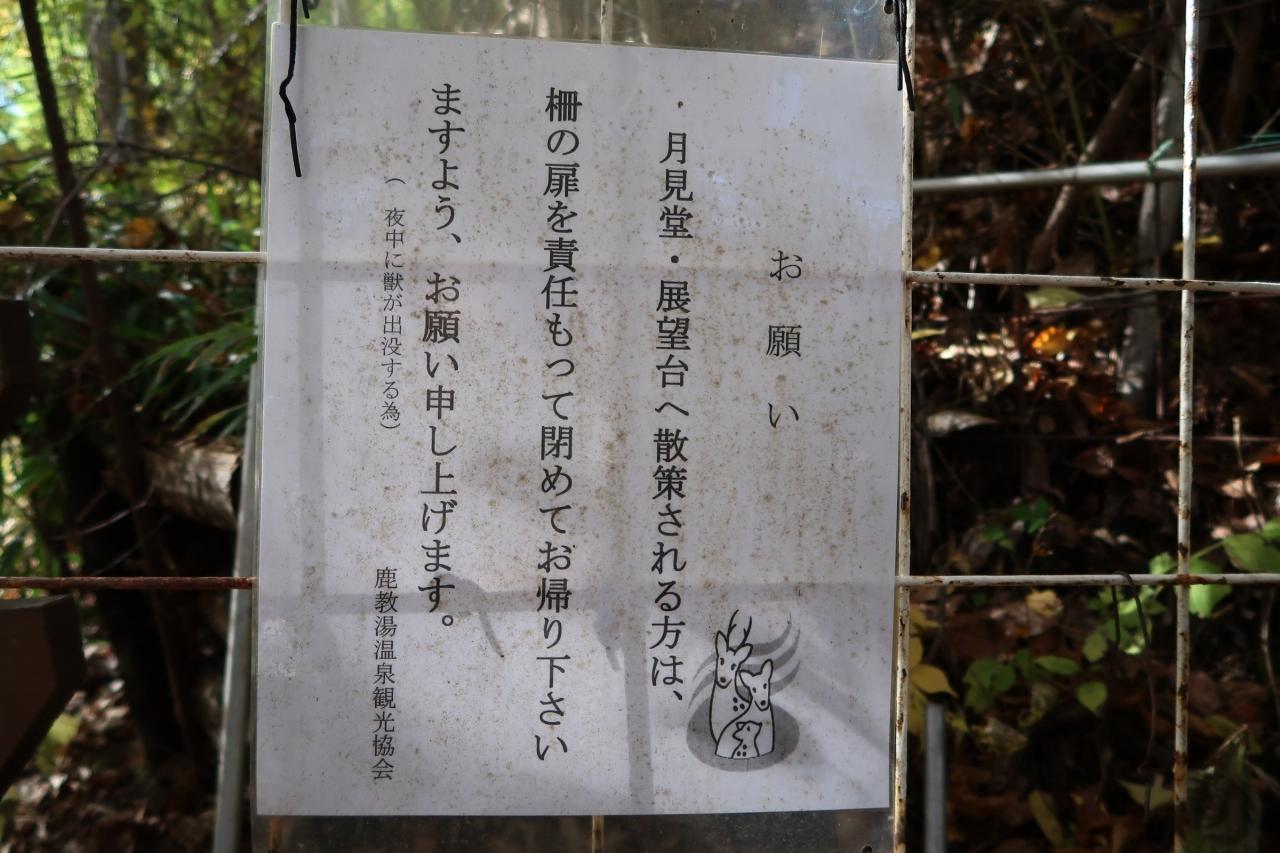 お願い
月見堂・展望台へ散策される方は、
柵の扉を責任もって閉めてお帰り下さい
ますよう、お願い申し上げます。
（夜中に獣が出没する為）
鹿教湯温泉観光協会